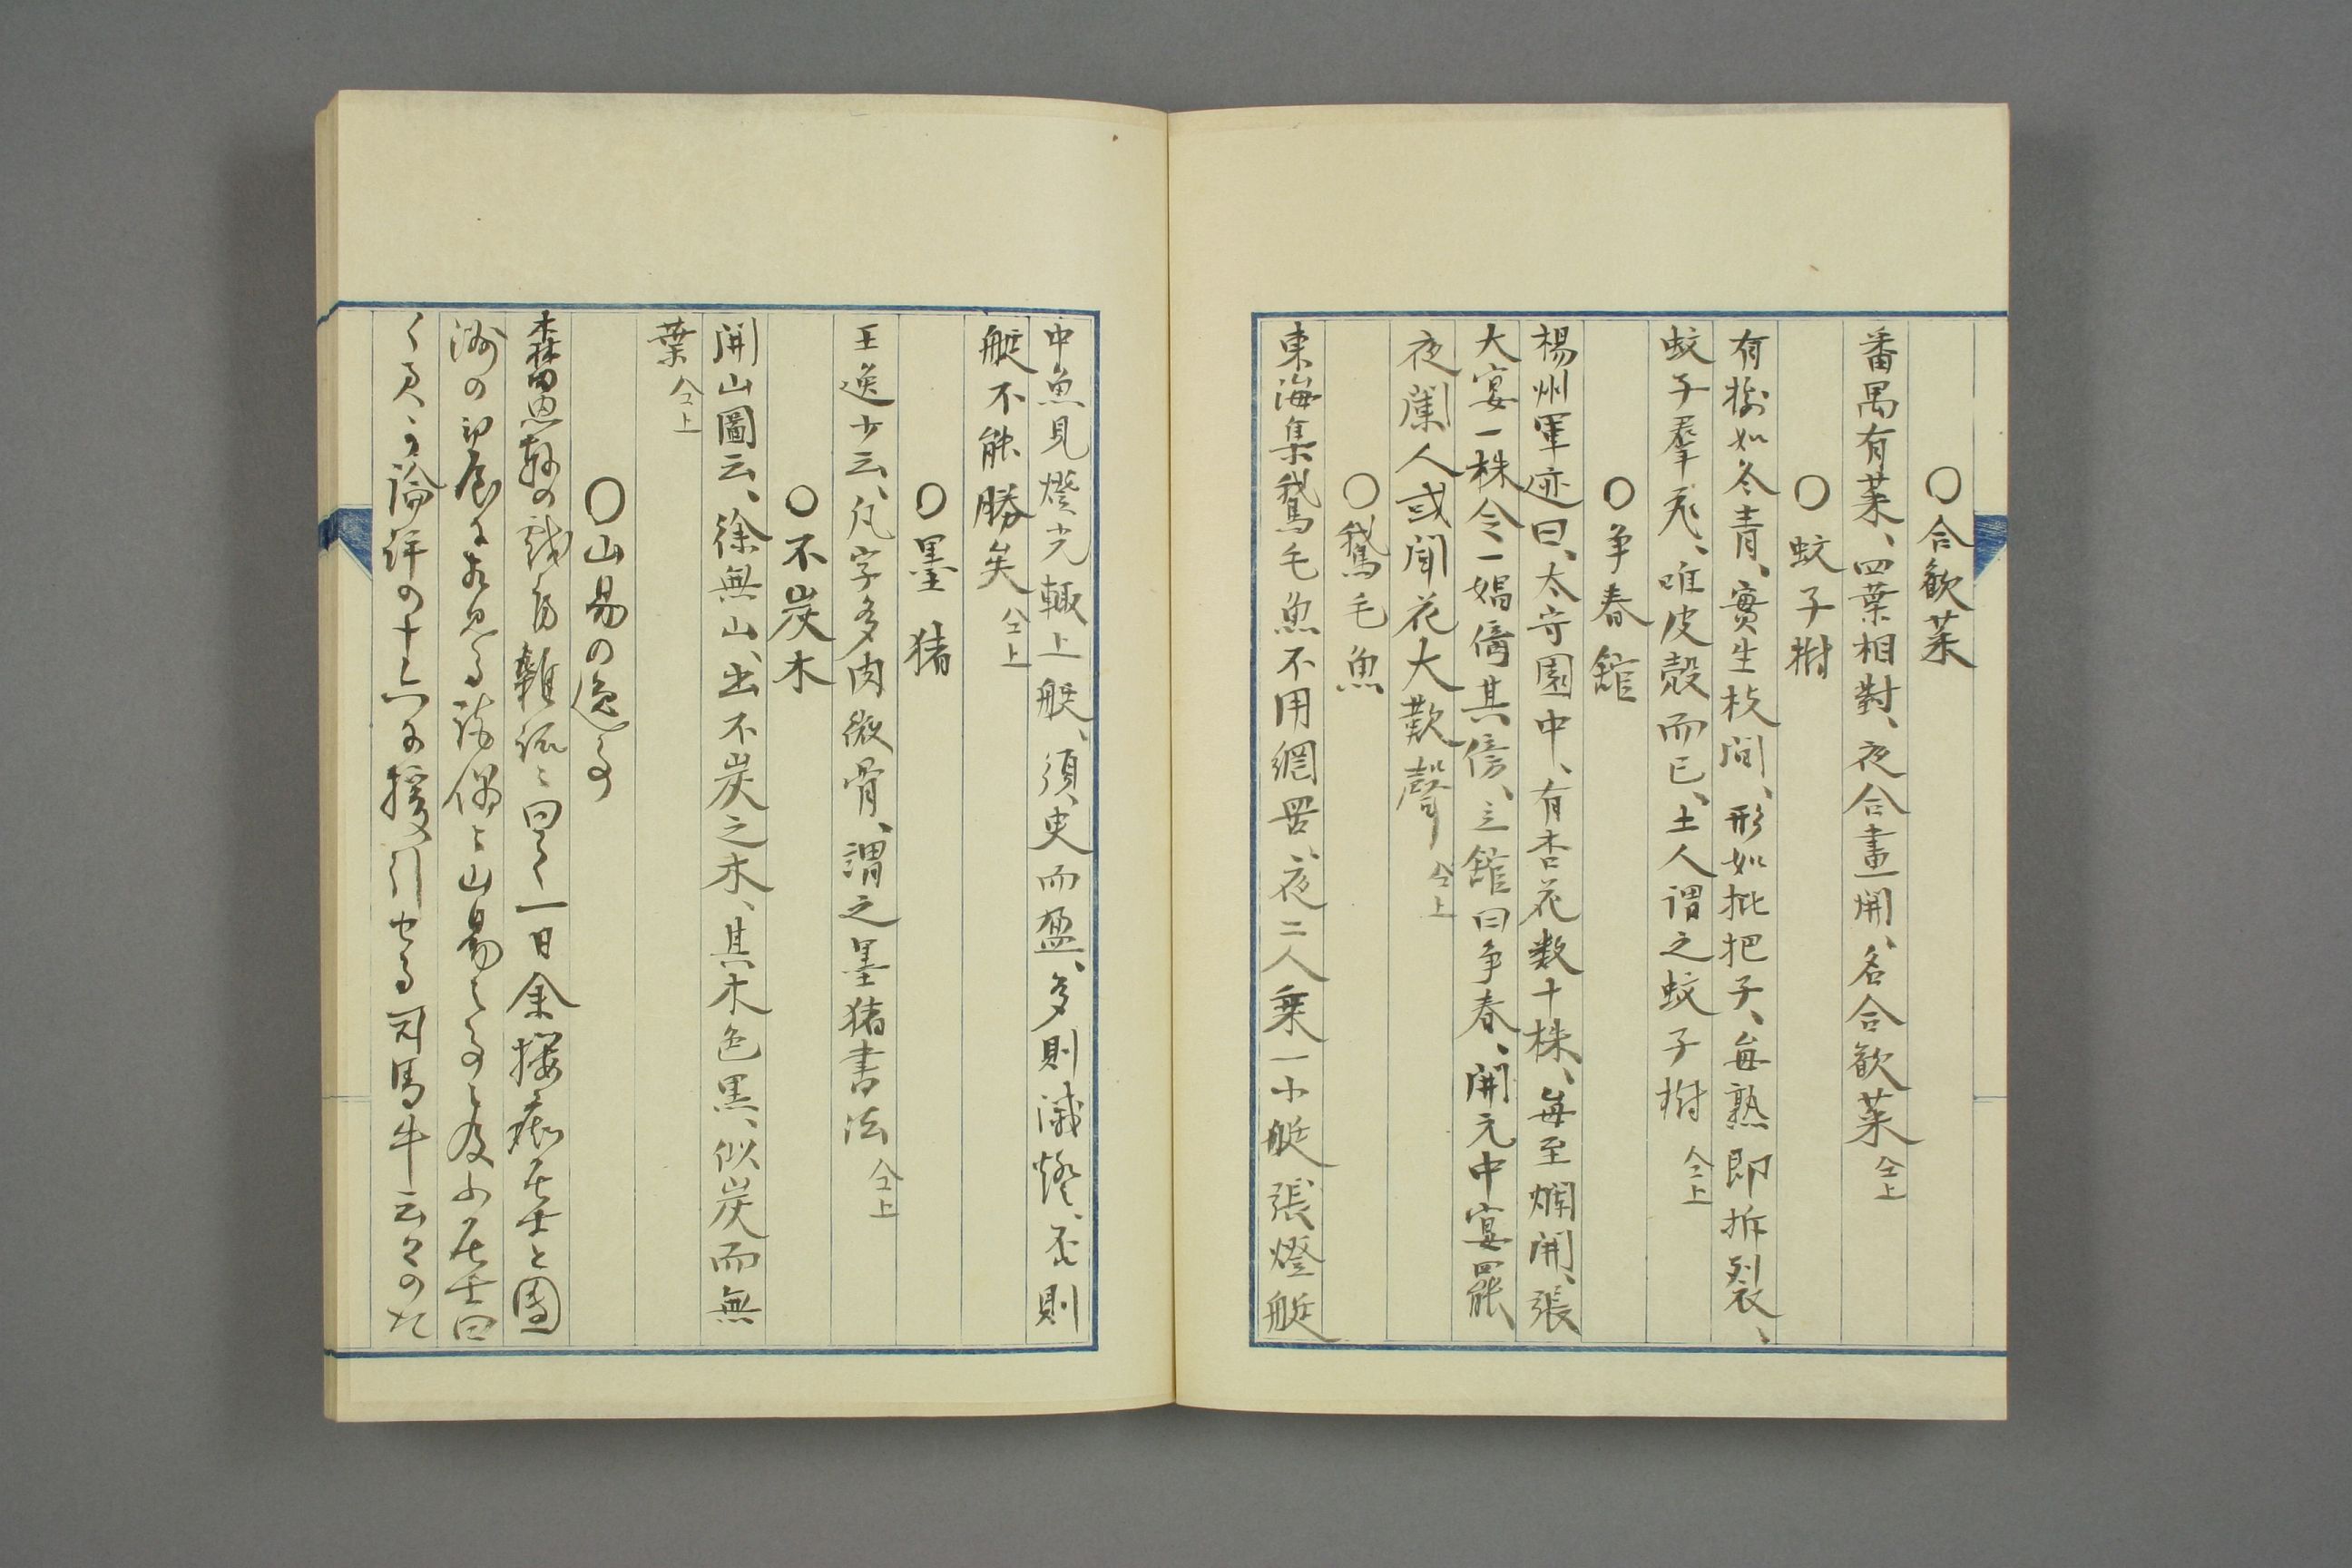 〇合歓菜
番禺有菜、四葉相對、夜合晝開、名合歓菜仝上
〇蚊子樹
有樹如冬青、實生枝間、形如枇杷子、毎熟即拆裂、
蚊子羣飛、唯皮殻而已、土人謂之蚊子樹 仝上
〇争春舘
楊州軍迹曰、太守園中、有杏花数十株、毎至爛開、張
大宴一株令一娼倚其傍、立舘曰争春、開元中宴罷
夜闌人或聞花大歎聲 仝上
〇鵞毛魚
東海集鵞毛魚不用網罟、夜二人乗一小艇張燈艇
中魚見燈光輙上艇、須臾而盈、多則滅燈、不則
艇不能勝矣 仝上
〇墨猪
王逸少云、凡字多肉微骨、謂之墨猪書法 仝上
〇不炭木
開山圖云、徐無山、出不炭之木、其木色黒、似炭而無
葉 仝上
〇山易の逸事
森田思軒の 雑 曰く一日金 居士と
の 山易 居士曰
く 論評の十六 援引せる司馬牛云々の